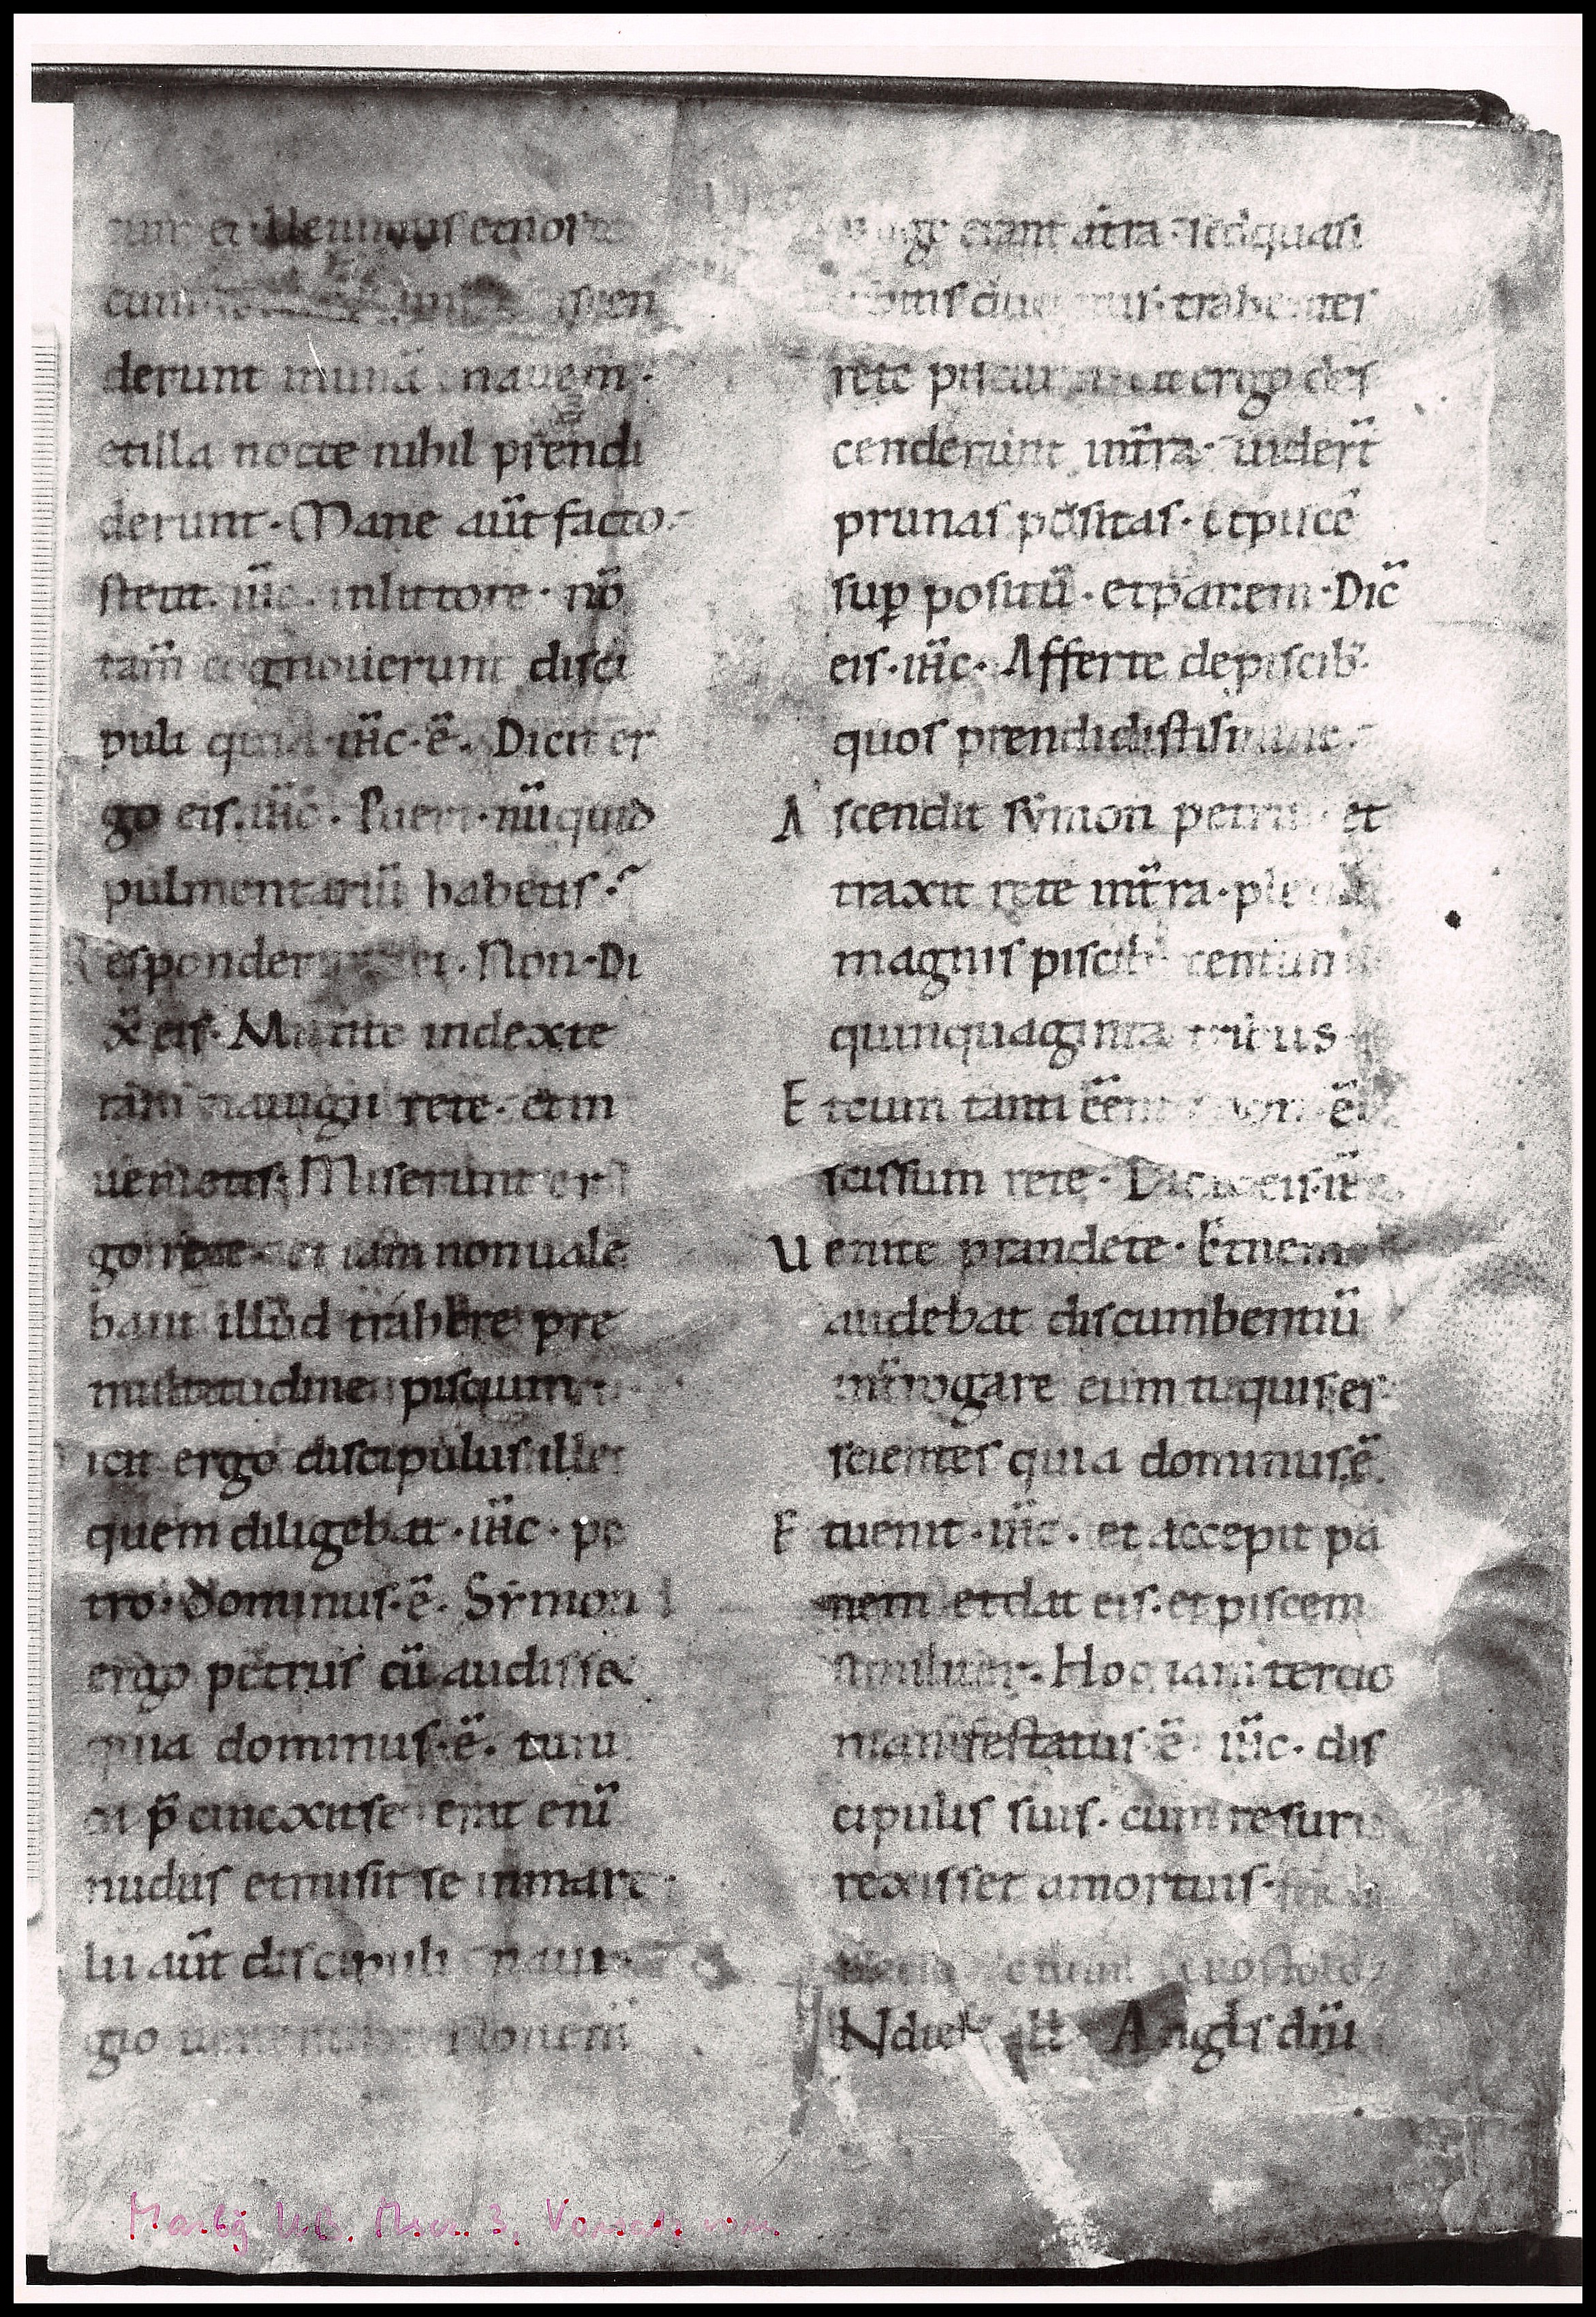 et Uenimus et nos te
cum
derunt in una navem ·
et illa nocte nihil prendi
derunt · Mane aut̄ facto ·
stetit · ih̄c · in littore · n̄o
tam̄ cognouerunt disci
puli quia · ih̄c · ē · Dicit er
go eis · ih̄c · Pueri · nūquid
pulmentariū habetis ·
Responderunt ei · Non · Di
x̄ eis · Mittite in dexte
ram nauigii rete · et in
uenietis · Miserunt er
go rete · et iam non uale
bant illud trahere pre
multitudine piscium ·
icit ergo discipulus ille
quem diligebat · ih̄c · pe
tro · dominus · ē · Symon
ergo petrus cū audisset
quia dominus · ē · tuni
ca p̄cincxit se erat enī
nudus et misit se in mare ·
lii aut̄ discipuli naui
gio uenerunt Non enī
longe erant a t̄ra · sed quasi
cubitis ducentis · trahentes
rete pisciū ergo des
cenderunt in t̄ra · uider̄t
prunas positas · et piscē
suꝑ positū · et panem · Dic̄
eis · ih̄c · Afferte de piscib ·
quos prendidistis nunc ·
Ascendit symon petrus et
traxit rete in t̄ra · plenū
magnis piscib centum
quinquaginta tribus
Et cum tanti eēnt non ē
scissum rete · Dicit eis · ih̄c
Uenite prandete · Et nemo
audebat discumbentiū
int̄rogare eum tu quis es ·
scientes quia dominus · ē ·
Et uenit · ih̄c · et accepit pa
nem et dat eis · et piscem
similiter · Hoc iam tercio
manifestatus · ē · ih̄c · dis
cipulis suis · cum resur
rexisset a mortuis ·
N dieb ill Angls dn̄i